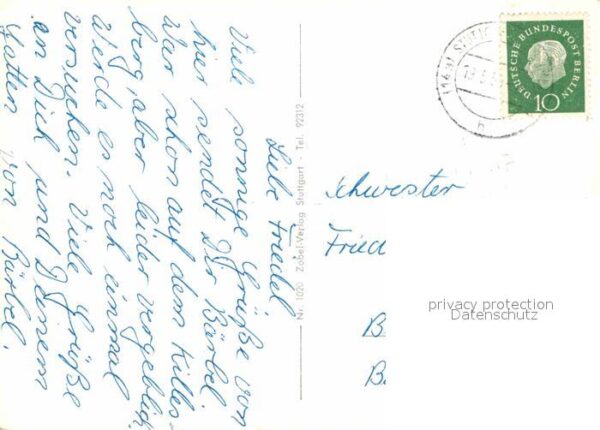 Liebe Friedel
Viele sonnige Grüße von
hier sendet Dir Bärbel
War schon auf dem Killes-
berg, aber leider vergeblich
Werde es noch einmal
versuchen. Viele Grüße
an Dich und Deinem
Gatten von Bärbel.
Nr. 1020 Zobel-Verlag Stuttgart - Tel. 92312
Schwester
Fried
B
B.
privacy protection
Datenschutz
DEUTSCHE BUNDESPOST BERLIN
10
(14a) STUTTG